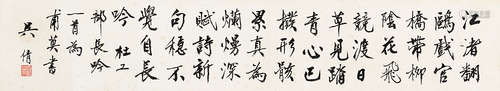 江渚翻
鷗戲官
橋帶柳
陰花飛
競渡日
草見踏
青心已
撥形骸
累真為
爛熳深
賦詩新
句穩不
覺自長
吟 杜工
部長吟
一首為
甫莫書
吳倩